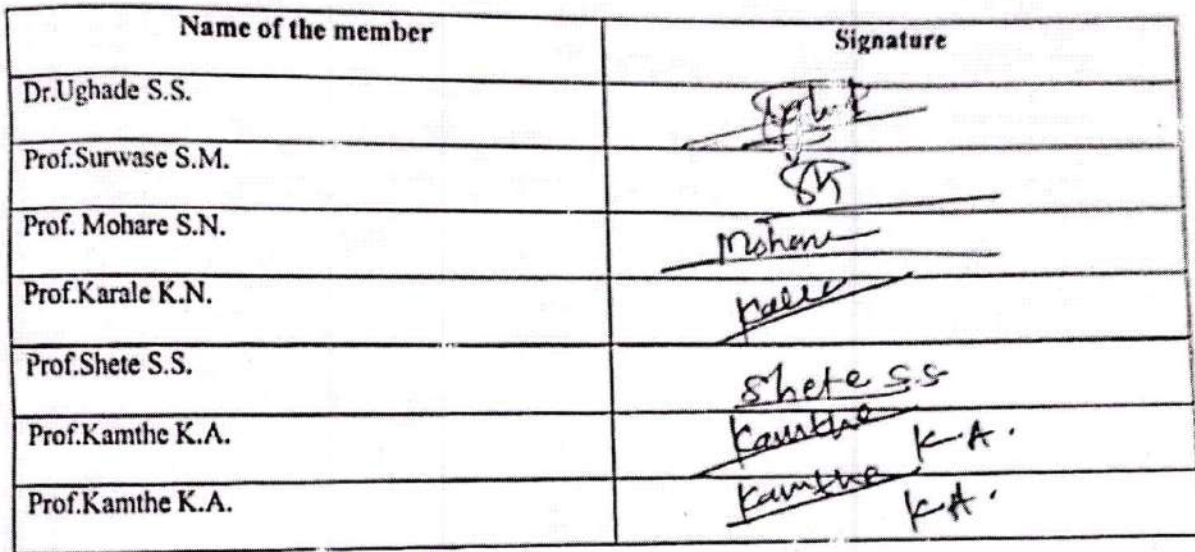 Name of the member Signature
Dr.Ughade S.S.
Prof.Surwase S.M.
Prof. Mohare S.N. Mohare
Prof.Karale K.N.
Prof.Shete S.S. Shete S.S
Prof.Kamthe K.A. Kamthe K.A.
Prof.Kamthe K.A. Kamthe K.A.